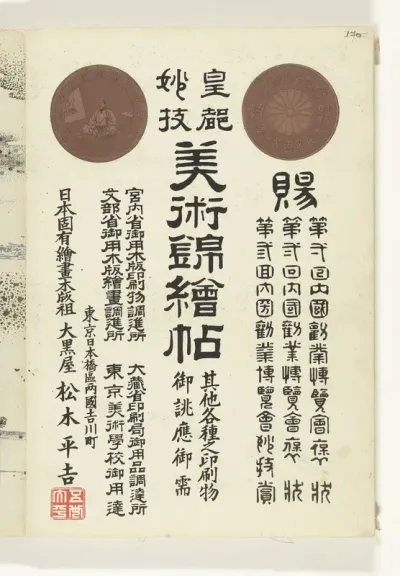 賜
第回内國勸業博覽會褒状
第回内國勸業博覽會褒状
第回内國勸業博覽會妙技賞
皇都
妙技
美術錦繪帖
其他各種之印刷物
御誂應御需
宮内省御用木版印刷物調進所
文部省御用木版繪畫調進所
大藏省印刷局御用品調達所
東京美術學校御用達
東京日本橋區両國吉川町
日本固有繪畫木版祖 大黒屋 松木平吉